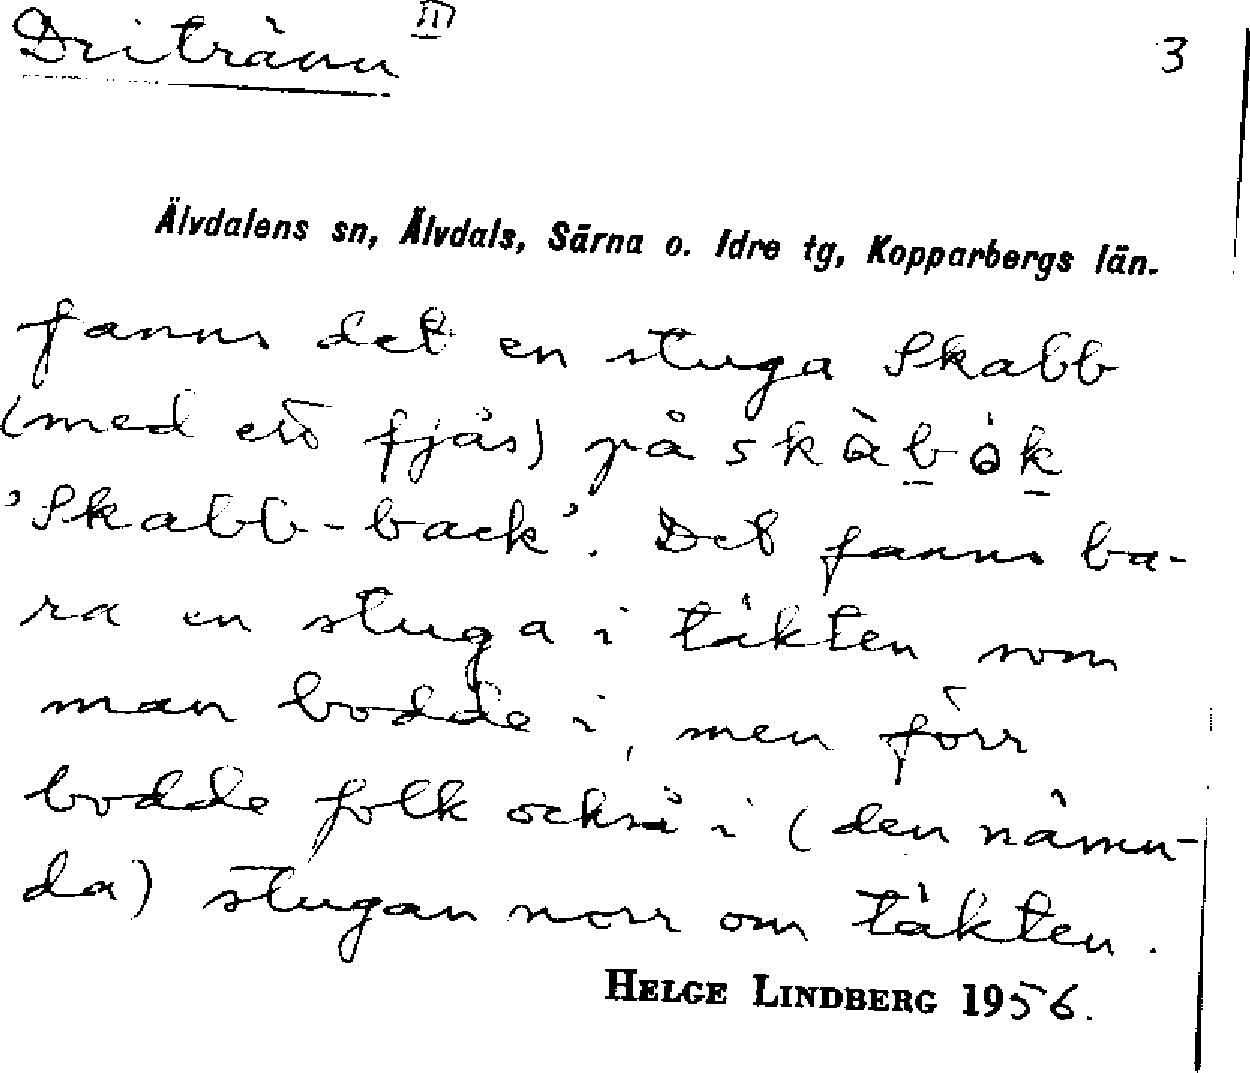 Dritränn III
3
Älvdalens sn, Älvdals, Särna o. Idre tg, Kopparbergs län.
fanns det en stuga Skabb
(med ett fjås) på skàbòk
'Skabb-back'. Det fanns ba-
ra en stuga i täkten som
man bodde i, men förr
bodde folk också i (den nämn-
da) stugan norr om täkten.
HELGE LINDBERG 1956.